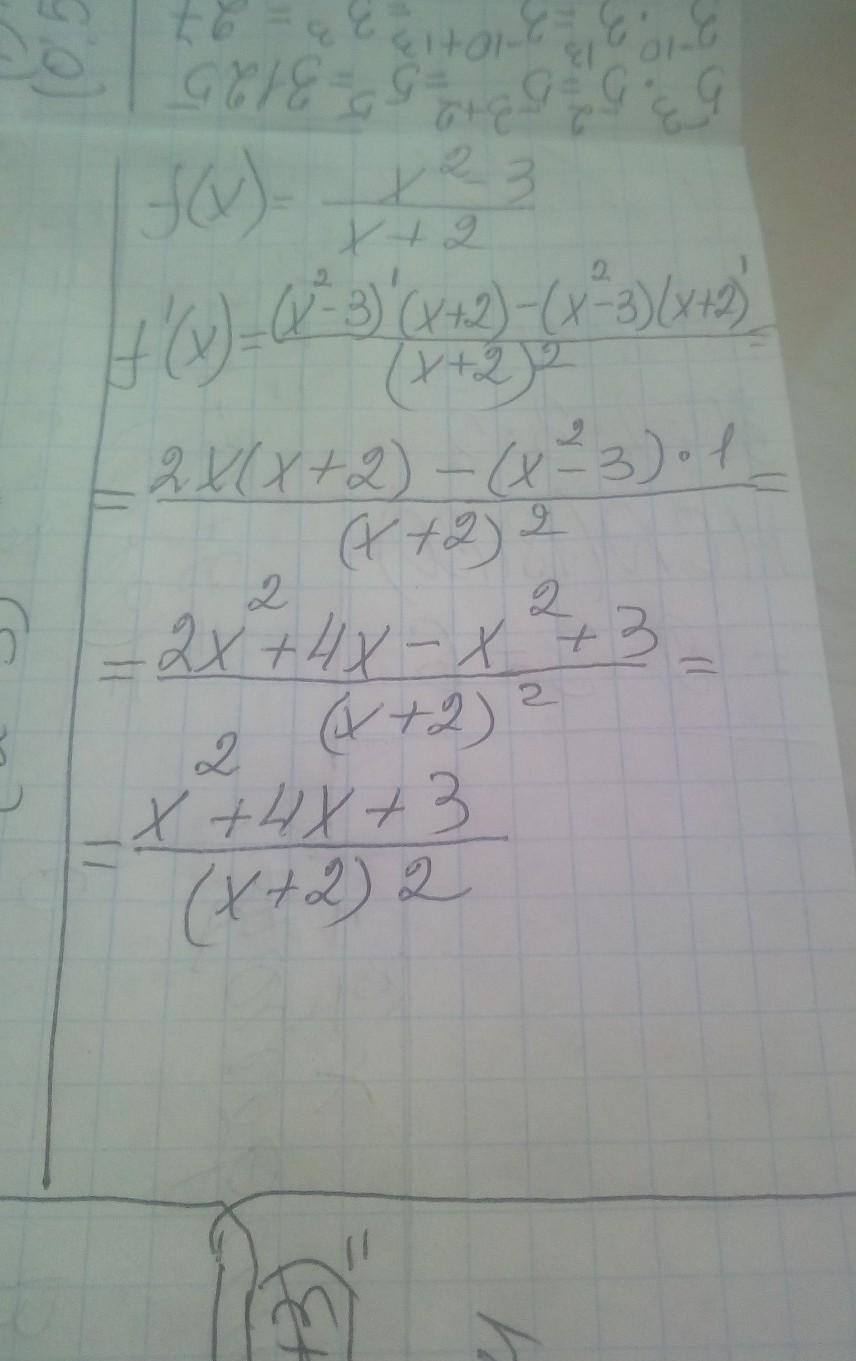 3^-10 · 3^13 = 3^-10+13 = 3^3 = 27
5^3 · 5^2 = 5^3+2 = 5^5 = 3125
f(x) = (x^2 - 3)/(x + 2)
f'(x) = ((x^2 - 3)'(x+2) - (x^2 - 3)(x+2)')/(x+2)^2 =
= (2x(x+2) - (x^2 - 3) · 1)/(x+2)^2 =
= (2x^2 + 4x - x^2 + 3)/(x+2)^2 =
= (x^2 + 4x + 3)/(x+2)2